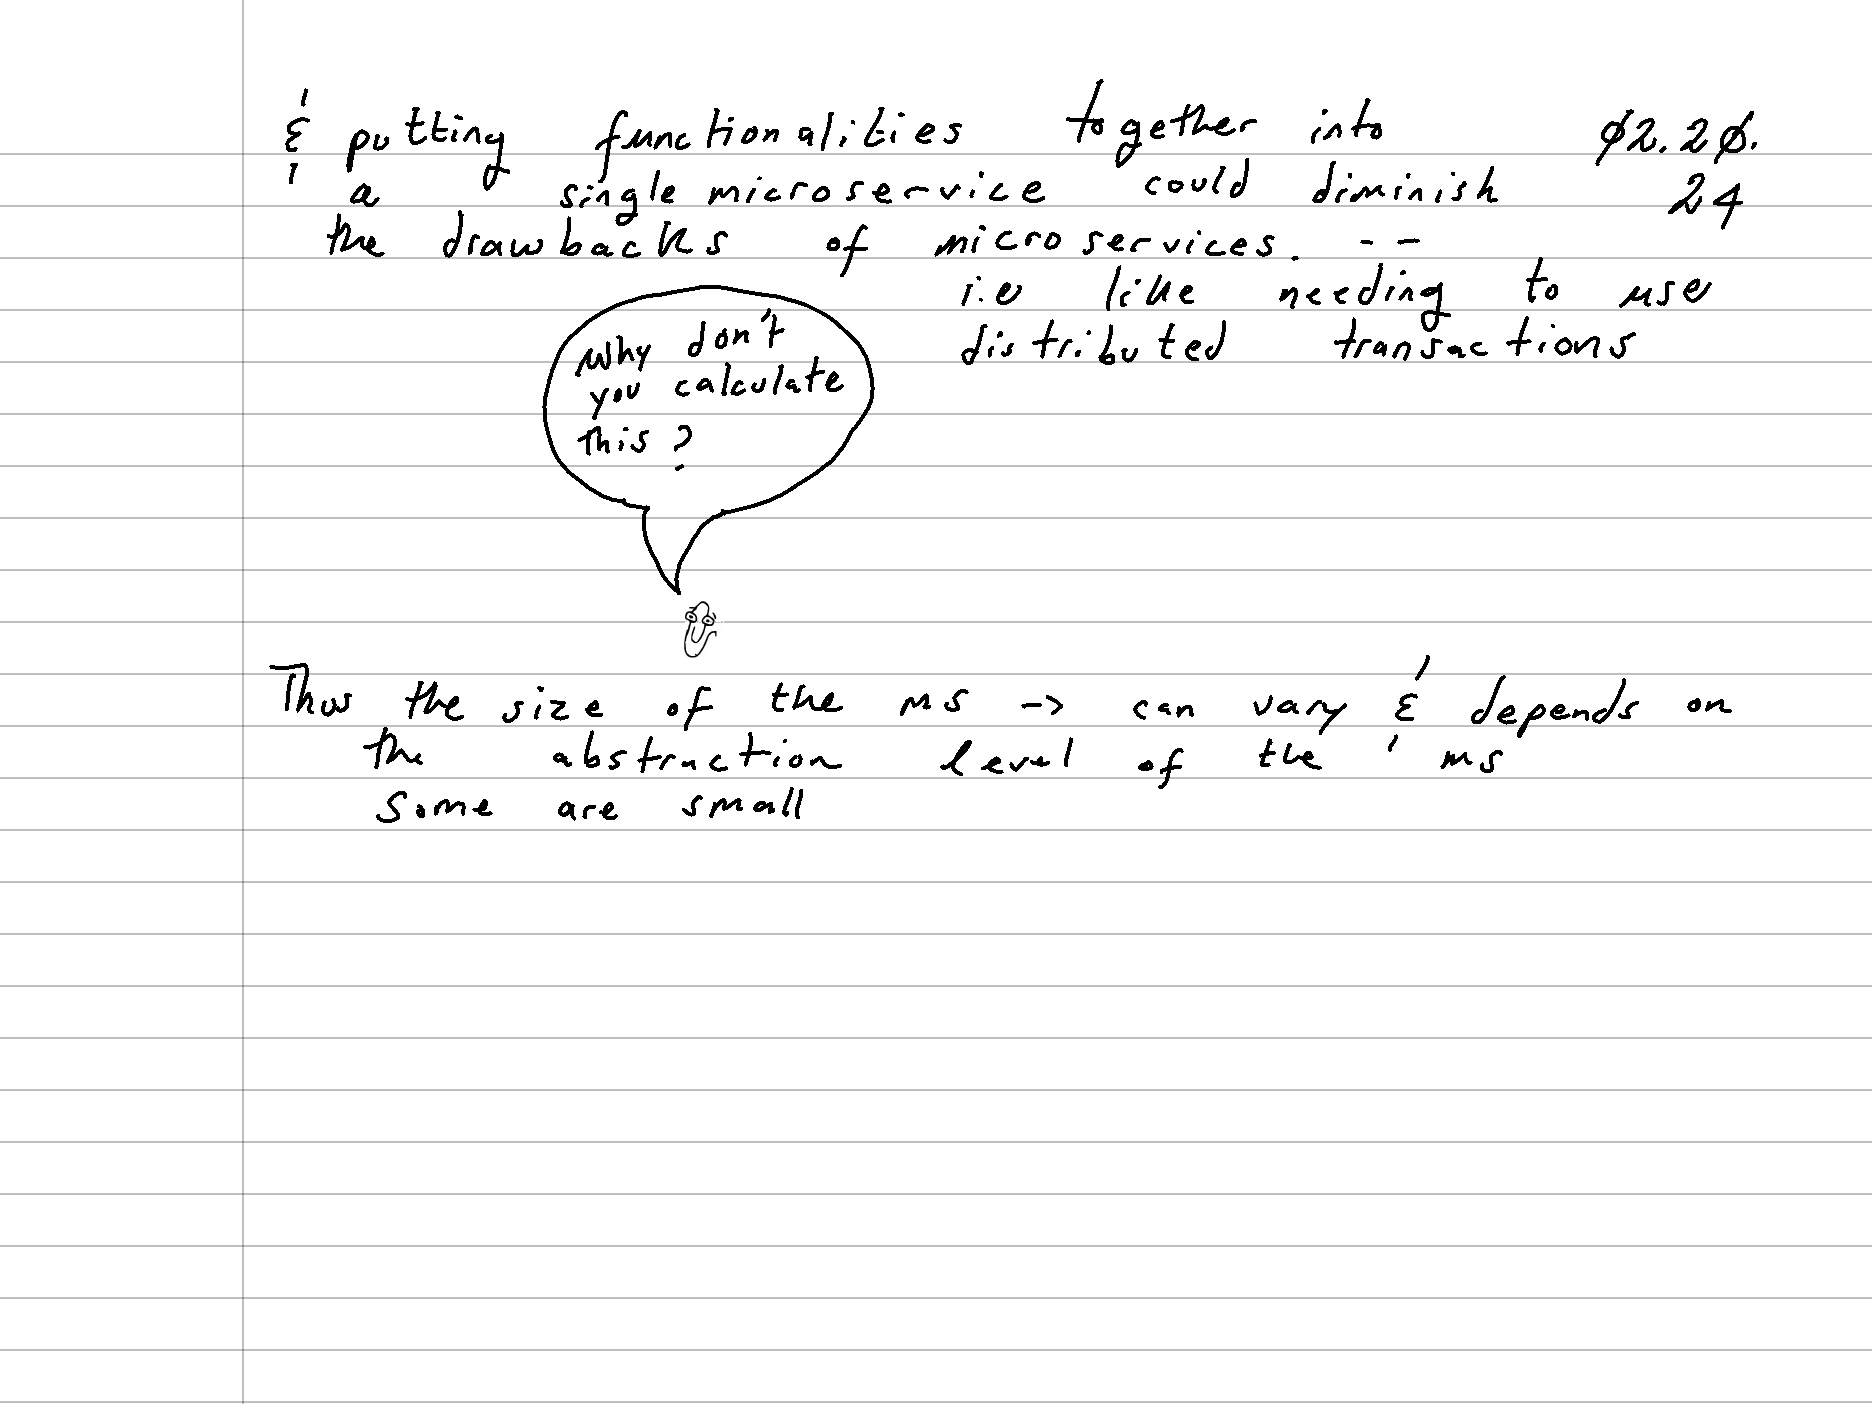 & putting functionalities together into
a single microservice could diminish
the drawbacks of microservices. --
i.e like needing to use
distributed transactions
02.20.
24
Why don't
you calculate
this?
Thus the size of the ms -> can vary & depends on
the abstraction level of the ms
Some are small